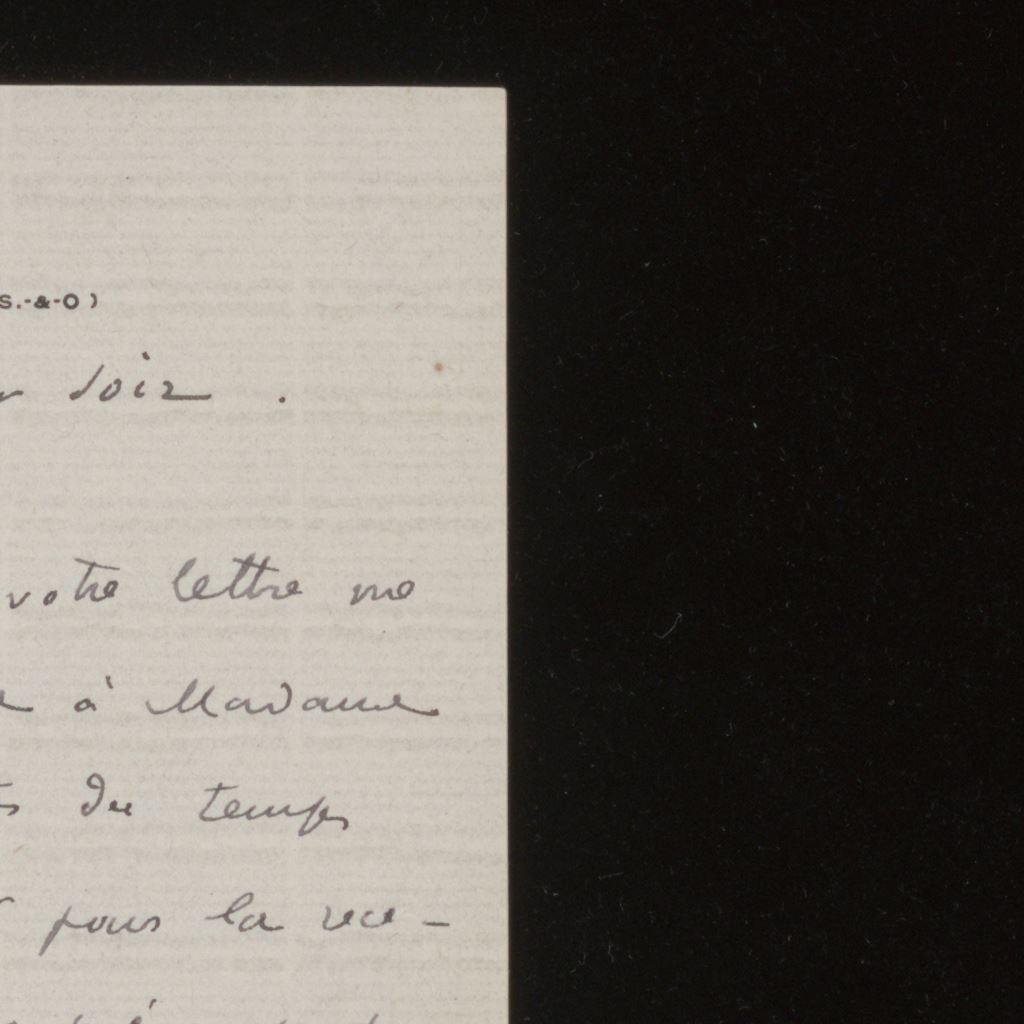 S.-&-O)
soir.
votre lettre me
à Madame
du temps
pour la rece-